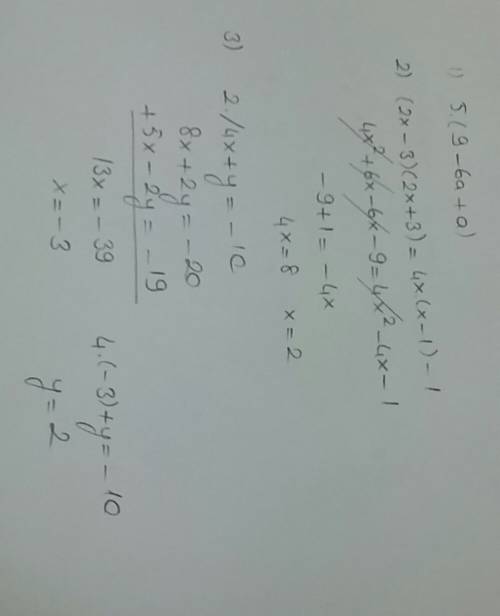 1) 5.(9-6a+a)
2) (2x-3)(2x+3)=4x.(x-1)-1
4x²+6x-6x-9=4x²-4x-1
-9+1=-4x
4x=8 x=2
3) 2./4x+y=-10
8x+2y=-20
+5x-2y=-19
13x=-39
x=-3
4.(-3)+y=-10
y=2